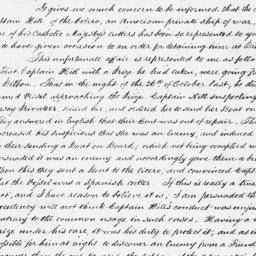 It gives me much concern to be informed, that the c
tain Hill, of the Cicero, an American private ship of war,
e of his Catholic Majesty's cutters has been so represented to yo
to have given occasion to an order for detaining him at Bil
This unfortunate affair is represented to me as follo
That Captain Hill with a Prize he had taken, were going fr
Bilboa. That in the night of the 26th of October last, he dis
a Vessel approaching his Prize. Captain Hill suspecting
ersey Privateer, hailed her, and ordered her to send her Boat on
They answered in English that their Boat was out of repair. Th
creased his suspicions that she was an enemy, and induced
their sending a Boat on Board; which not being complied w
suaded it was an enemy and accordingly gave them a br
pon this they sent a Boat to the Cicero, and convinced Capt
at the Vessel was a Spanish cutter. If this is really a true
ct, and I have reason to believe it is, I am persuaded th
cellency will not think Captain Hill's conduct was im
trary to the common usage in such cases. Having a
rize under his care, it was his duty to protect it; and as i
ossible for him at night to discover an Enemy from a Friend